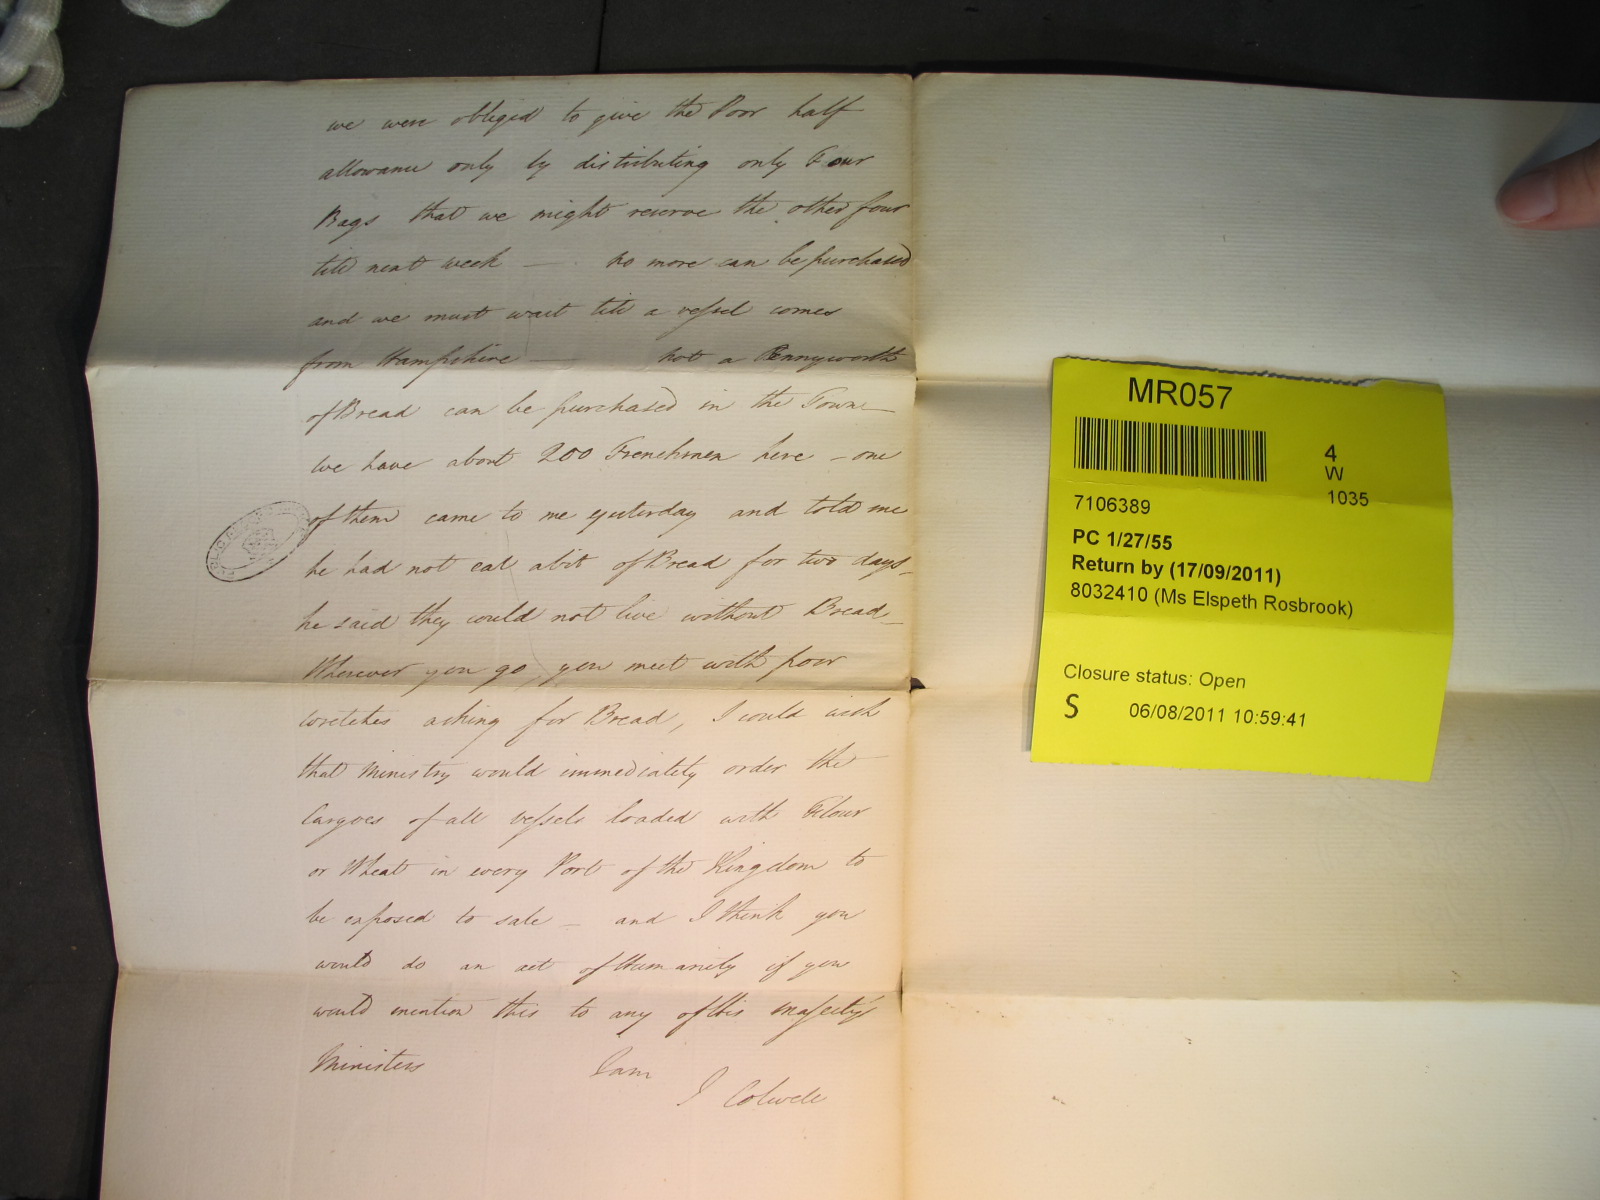 we were obliged to give the Poor half
allowance only by distributing only Four
Bags that we might reserve the other four
till next week — no more can be purchased
and we must wait till a vessel comes
from Hampshire — not a Pennyworth
of Bread can be purchased in the Town—
we have about 200 Frenchmen here – one
of them came to me yesterday and told me
he had not eat a bit of Bread for two days–
he said they could not live without Bread–
Wherever you go, you meet with poor
wretches asking for Bread, I could wish
that Ministry would immediately order the
Cargoes of all vessels loaded with Flour
or Wheat in every Port of the Kingdom to
be exposed to sale – and I think you
would do an act of Humanity if you
would mention this to any of His Majesty's
Ministers I am
J Colwell
MR057
4
W
1035
7106389
PC 1/27/55
Return by (17/09/2011)
8032410 (Ms Elspeth Rosbrook)
Closure status: Open
S 06/08/2011 10:59:41